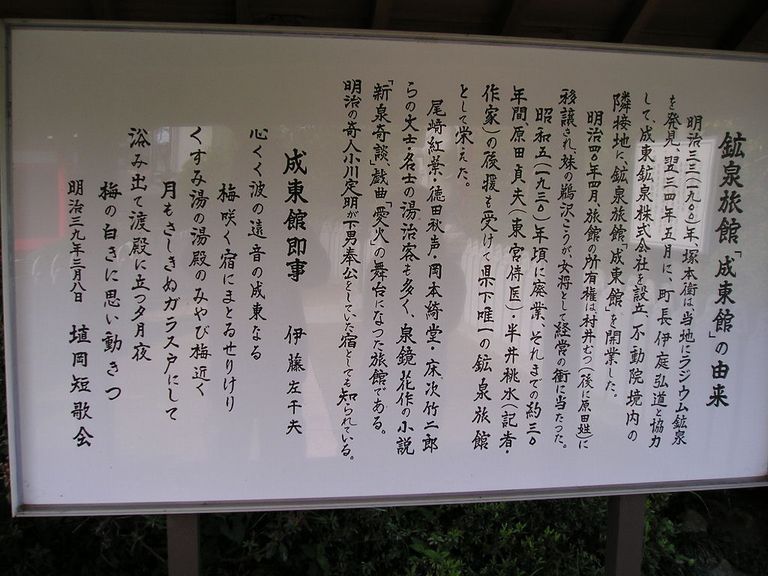 鉱泉旅館「成東館」の由来
明治三三(一九〇〇)年、塚本街は当地にラジウム鉱泉
を発見、翌三四年五月に、町長伊庭弘道と協力
して、成東鉱泉株式会社を設立、不動院境内の
隣接地に、鉱泉旅館「成東館」を開業した。
明治四〇年四月、旅館の所有権は村井むつ(後に原田姓)に
移譲され、妹の鵜沢こうが、女将として経営の衝に当たった。
昭和五(一九三〇)年頃に廃業、それまでの約三〇
年間原田貞夫(東宮侍医)・半井桃水(記者・
作家)の後援も受けて県下唯一の鉱泉旅館
として栄えた。
尾崎紅葉・徳田秋声・岡本綺堂・床次竹二郎
らの文士・名士の湯治客も多く、泉鏡花作の小説
「新泉奇談」、戯曲「愛火」の舞台になった旅館である。
明治の奇人小川定明が下男奉公をしていた宿としても知られている。
成東館即事 伊藤左千夫
心くく波の遠音の成東なる
梅咲く宿にまとゐせりけり
くすみ湯の湯殿のみやび梅近く
月もさしきぬガラス戸にして
浴み出て渡殿に立つ夕月夜
梅の白きに思い動きつ
明治三九年三月八日 埴岡短歌会